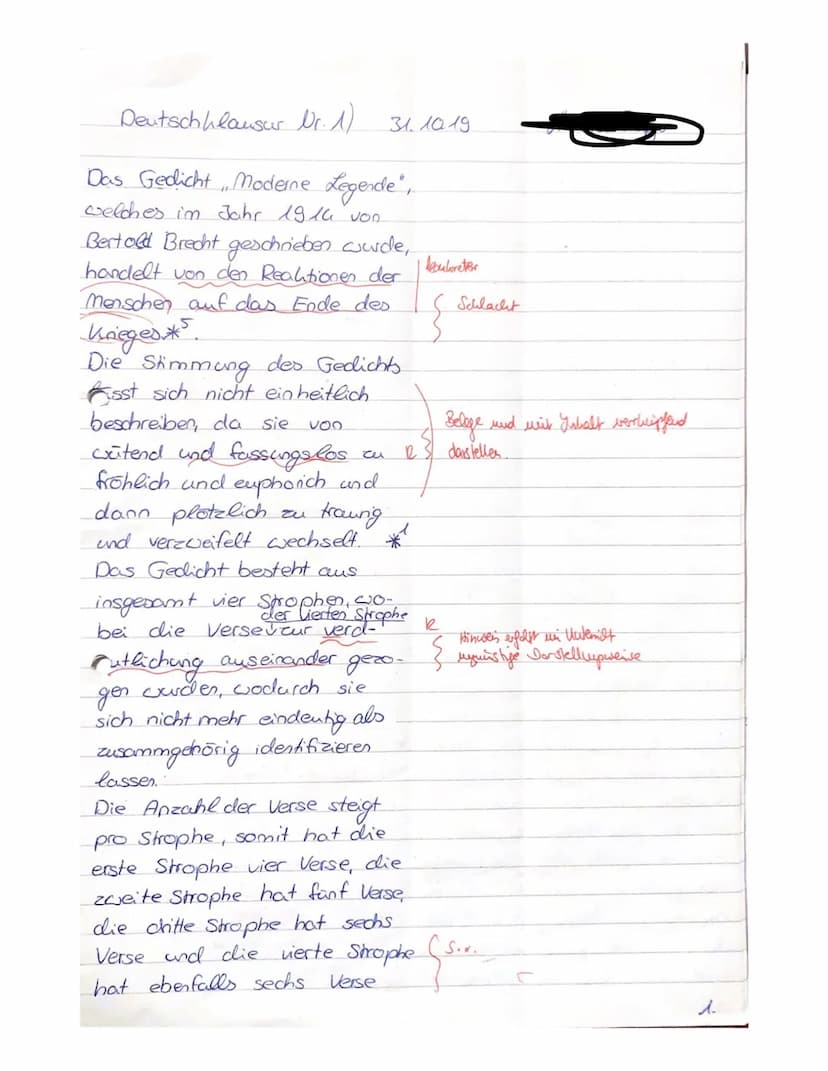 Deutschklausur Nr. 1) 31.10.19
Das Gedicht „Moderne Legende",
welches im Jahr 1914 von
Bertold Brecht geschrieben wurde,
handelt von den Reaktionen der
konkreter
Menschen auf das Ende des
Schlacht
Krieges *5.
Die Stimmung des Gedichts
lässt sich nicht einheitlich
beschreiben, da sie von
Belege und mit Inhalt verknüpfend
wütend und fassungslos zu
R
darstellen.
fröhlich und euphorich und
dann plötzlich zu traurig
und verzweifelt wechselt. *1
Das Gedicht besteht aus
insgesamt vier Strophen, wo-
der vierten Strophe
bei die Verse zur verd-
R
Hinweis erfolgt im Unterricht
eutlichung auseinander gezo-
ungünstige Darstellungsweise
gen wurden, wodurch sie
sich nicht mehr eindeutig als
zusammgehörig identifizieren
lassen.
Die Anzahl der Verse steigt
pro Strophe, somit hat die
erste Strophe vier Verse, die
zweite Strophe hat fünf Verse,
die dritte Strophe hat sechs
Verse und die vierte Strophe
s.o.
hat ebenfalls sechs Verse
1.